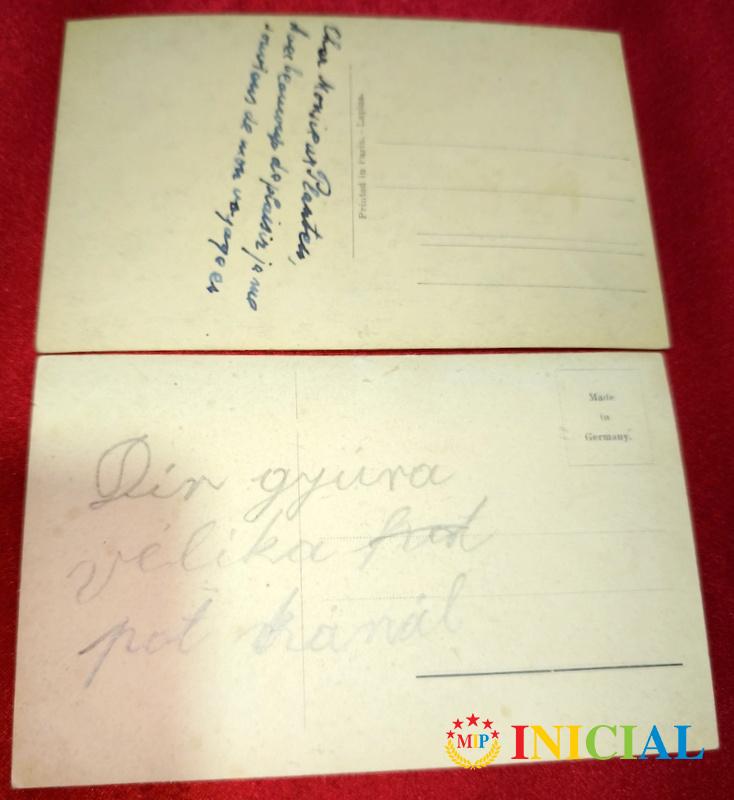 Cher Monsieur Planten,
Avec beaucoup de plaisir je me
souviens de mon voyage en
Printed in Paris. - Lapina.
Made
in
Germany.
Dir gyúra
vélika
pot kánál
MIP INICIAL